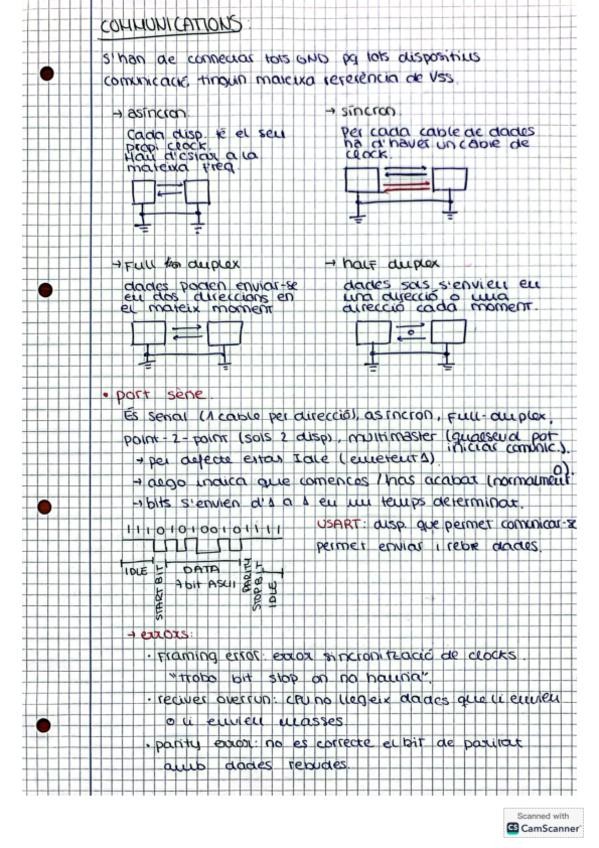 COMMUNICATIONS:
S'han de connectar tots GND pq tots dispositius
comunicació, tinguin mateixa referència de Vss.
→ asíncron
Cada disp. té el seu
propi clock.
Hau d'estar a la
mateixa freq.
→ síncron
Per cada cable de dades
ha d'haver un cable de
clock.
→ Full duplex
dades poden enviar-se
en dos direccions en
el mateix moment
→ half duplex
dades sols s'envien en
una direcció o una
direcció cada moment.
o
• port sèrie
És serial (1 cable per direcció), asíncron, Full-duplex,
point-2-point (sols 2 disp), multimaster (qualsevol pot
iniciar comunic.).
→ per defecte estas Idle (emetent 1)
→ algo indica que comences / has acabat (normalment
0).
→ bits s'envien d'1 a 1 en un temps determinat.
1 1 1 0 1 0 1 0 0 1 0 1 1 1 1
IDLE
START BIT
DATA
7 bit ASCII
PARITY
STOP BIT
IDLE
USART: disp. que permet comunicar-se
permet enviar i rebre dades.
→ errors:
· Framing error: error sincronització de clocks
"trobo bit stop on no hauria".
· reciver overrun: CPU no llegeix dades que li envien
o li envien masses
· parity error: no es correcte el bit de paritat
amb dades rebudes.
Scanned with
CS CamScanner